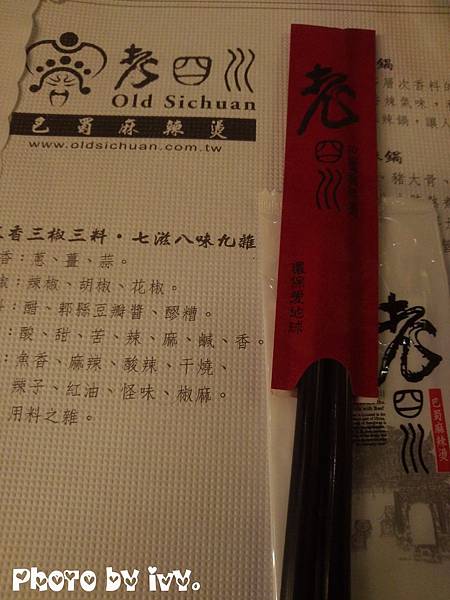 老四川
Old Sichuan
巴蜀麻辣燙
www.oldsichuan.com.tw
香三椒三料・七滋八味九雜
香：蔥、薑、蒜。
椒：辣椒、胡椒、花椒。
：醋、郫縣豆瓣醬、醪糟。
：酸、甜、苦、辣、麻、鹹、香。
：魚香、麻辣、酸辣、干燒、
辣子、紅油、怪味、椒麻。
用料之雜。
鍋
層次香料的
辣氣味，
辣鍋，讓人
鍋
、豬大骨、
老四川
巴蜀麻辣燙
環保愛地球
老四川
巴蜀麻辣燙
Photo by ivy.